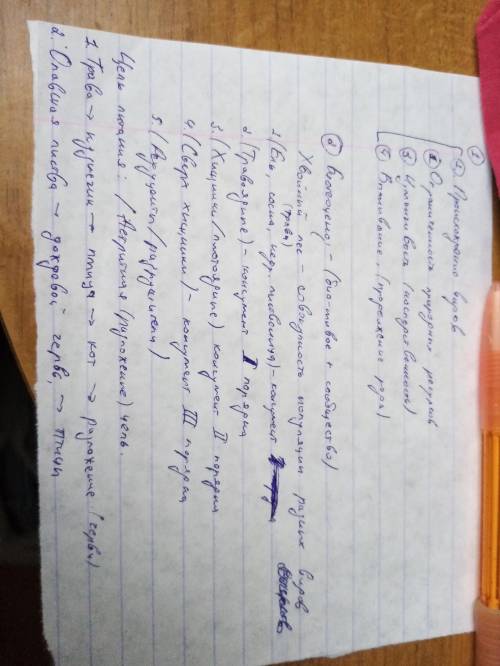 ①
① Происхождение видов
② Ограниченность природных ресурсов
③ Изменчивость (наследственность)
④ Выживание (продолжение рода)
② Биоценоз – (био-живое + сообщество)
Хвойный лес – совокупность популяций разных видов
(трава)
1 (Ель, сосна, кедр, лиственница) – консумент
2 (Травоядные) – консумент I порядка
3. (Хищники/плотоядные) консумент II порядка
4. (Сверх хищники) – консумент III порядка
5. (Редуценты/разрушители)
Цепи питания: / (разложение) цепь.
1. Трава → кузнечик → птица → кот → разложение (черви)
2. Опавшая листва → дождовой червь, → птицы